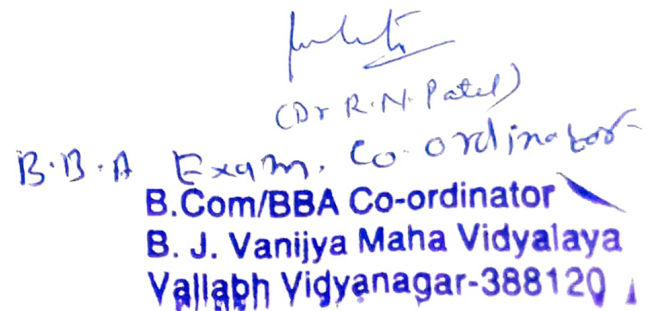 (Dr R.N. Patel)
B.B.A Exam. Co-ordinator
B.Com/BBA Co-ordinator
B. J. Vanijya Maha Vidyalaya
Vallabh Vidyanagar-388120